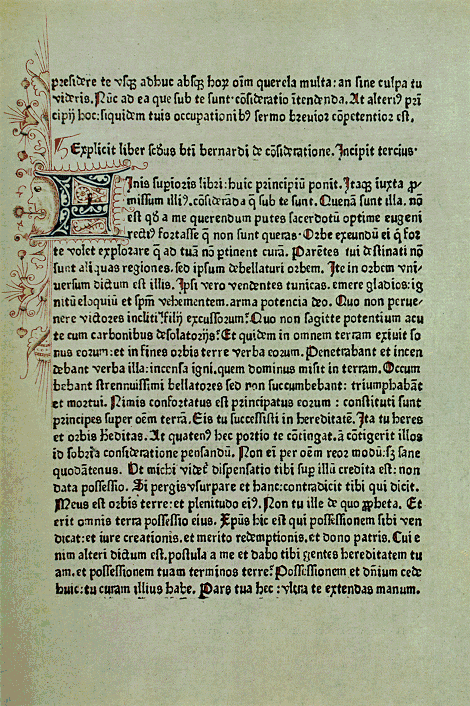 presidere te vsq̨ adhuc absq̨ hoꝝ oīm querela multa: an sine culpa tu
videris. Nūc ad ea que sub te sunt· cōsideratio ītendenda. At alteriꝰ prī
cipij hoc: siquidem tuis occupationibꝰ sermo brevior cōpetentior est.
Explicit liber scd̄us btī bernardi de cōsideratione. Incipit tercius·
Finis supioris libri: huic principiū ponit. Itaq̨ iuxta ꝓ-
missum illiꝰ, cōsiderāda q̄ sub te sunt. Quenā sunt illa, nō
est qđ a me querendum putes sacerdotū optime eugeni
rectiꝰ fortasse q̄ non sunt queras· Orbe exeundū ei q̄ for
te volet explorare q̄ ad tuā nō ꝑtinent curā. Parētes tui destinati nō
sunt aliquas regiones, sed ipsum debellaturi orbem. Ite in orbem vni-
uersum dictum est illis. Ipsi vero vendentes tunicas, emere gladios: ig
nitū eloquiū et spm̄ vehementem, arma potencia deo. Quo non perue-
nere victores incliti: filij excussorum? Quo non sagitte potentium acu
te cum carbonibus desolatorijs? Et quidem in omnem terram exiuit so
nus eorum: et in fines orbis terre verba eorum. Penetrabant et incen
debant verba illa: incensa igni, quem dominus misit in terram. Occum
bebant strennuissimi bellatores sed non succumbebant: triumphabāt
et mortui. Nimis confortatus est principatus eorum: constituti sunt
principes super oēm terrā. Eis tu successisti in hereditatē. Ita tu heres
et orbis hēditas. At quatenꝰ hec portio te cōtingat, ā cōtigerit illos
id sobria consideratione pensandū. Non eī per oēm reor modū: sꝫ sane
quodātenus. Ut michi videt᷑ dispensatio tibi sup illū credita est: non
data possessio. Si pergis vsurpare et hanc: contradicit tibi qui dicit.
Meus est orbis terre: et plenitudo eiꝰ. Non tu ille de quo ꝓpheta. Et
erit omnis terra possessio eius. Xp̄us hic est qui possessionem sibi ven
dicat: et iure creationis, et merito redemptionis, et dono patris. Cui e
nim alteri dictum est, postula a me et dabo tibi gentes hereditatem tu
am, et possessionem tuam terminos terre? Possessionem et dn̄ium cede
huic: tu curam illius habe. Pars tua hec: vltra te extendas manum.